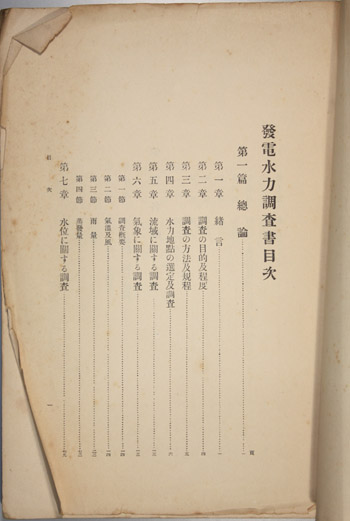 發電水力調査書目次
頁
第一篇 總論……一
第一章 緒言……一
第二章 調査の目的及程度……四
第三章 調査の方法及規程……五
第四章 水力地點の選定及調査……六
第五章 流域に關する調査……一三
第六章 氣象に關する調査……一四
第一節 調査概要……一四
第二節 氣溫及風……一四
第三節 雨量
第四節 蒸發量
第七章 水位に關する調査
目次
一